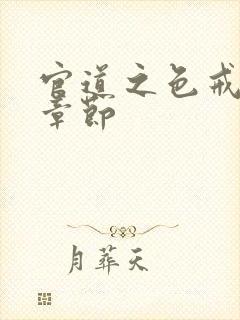 官道之色戒
章节
月葬天